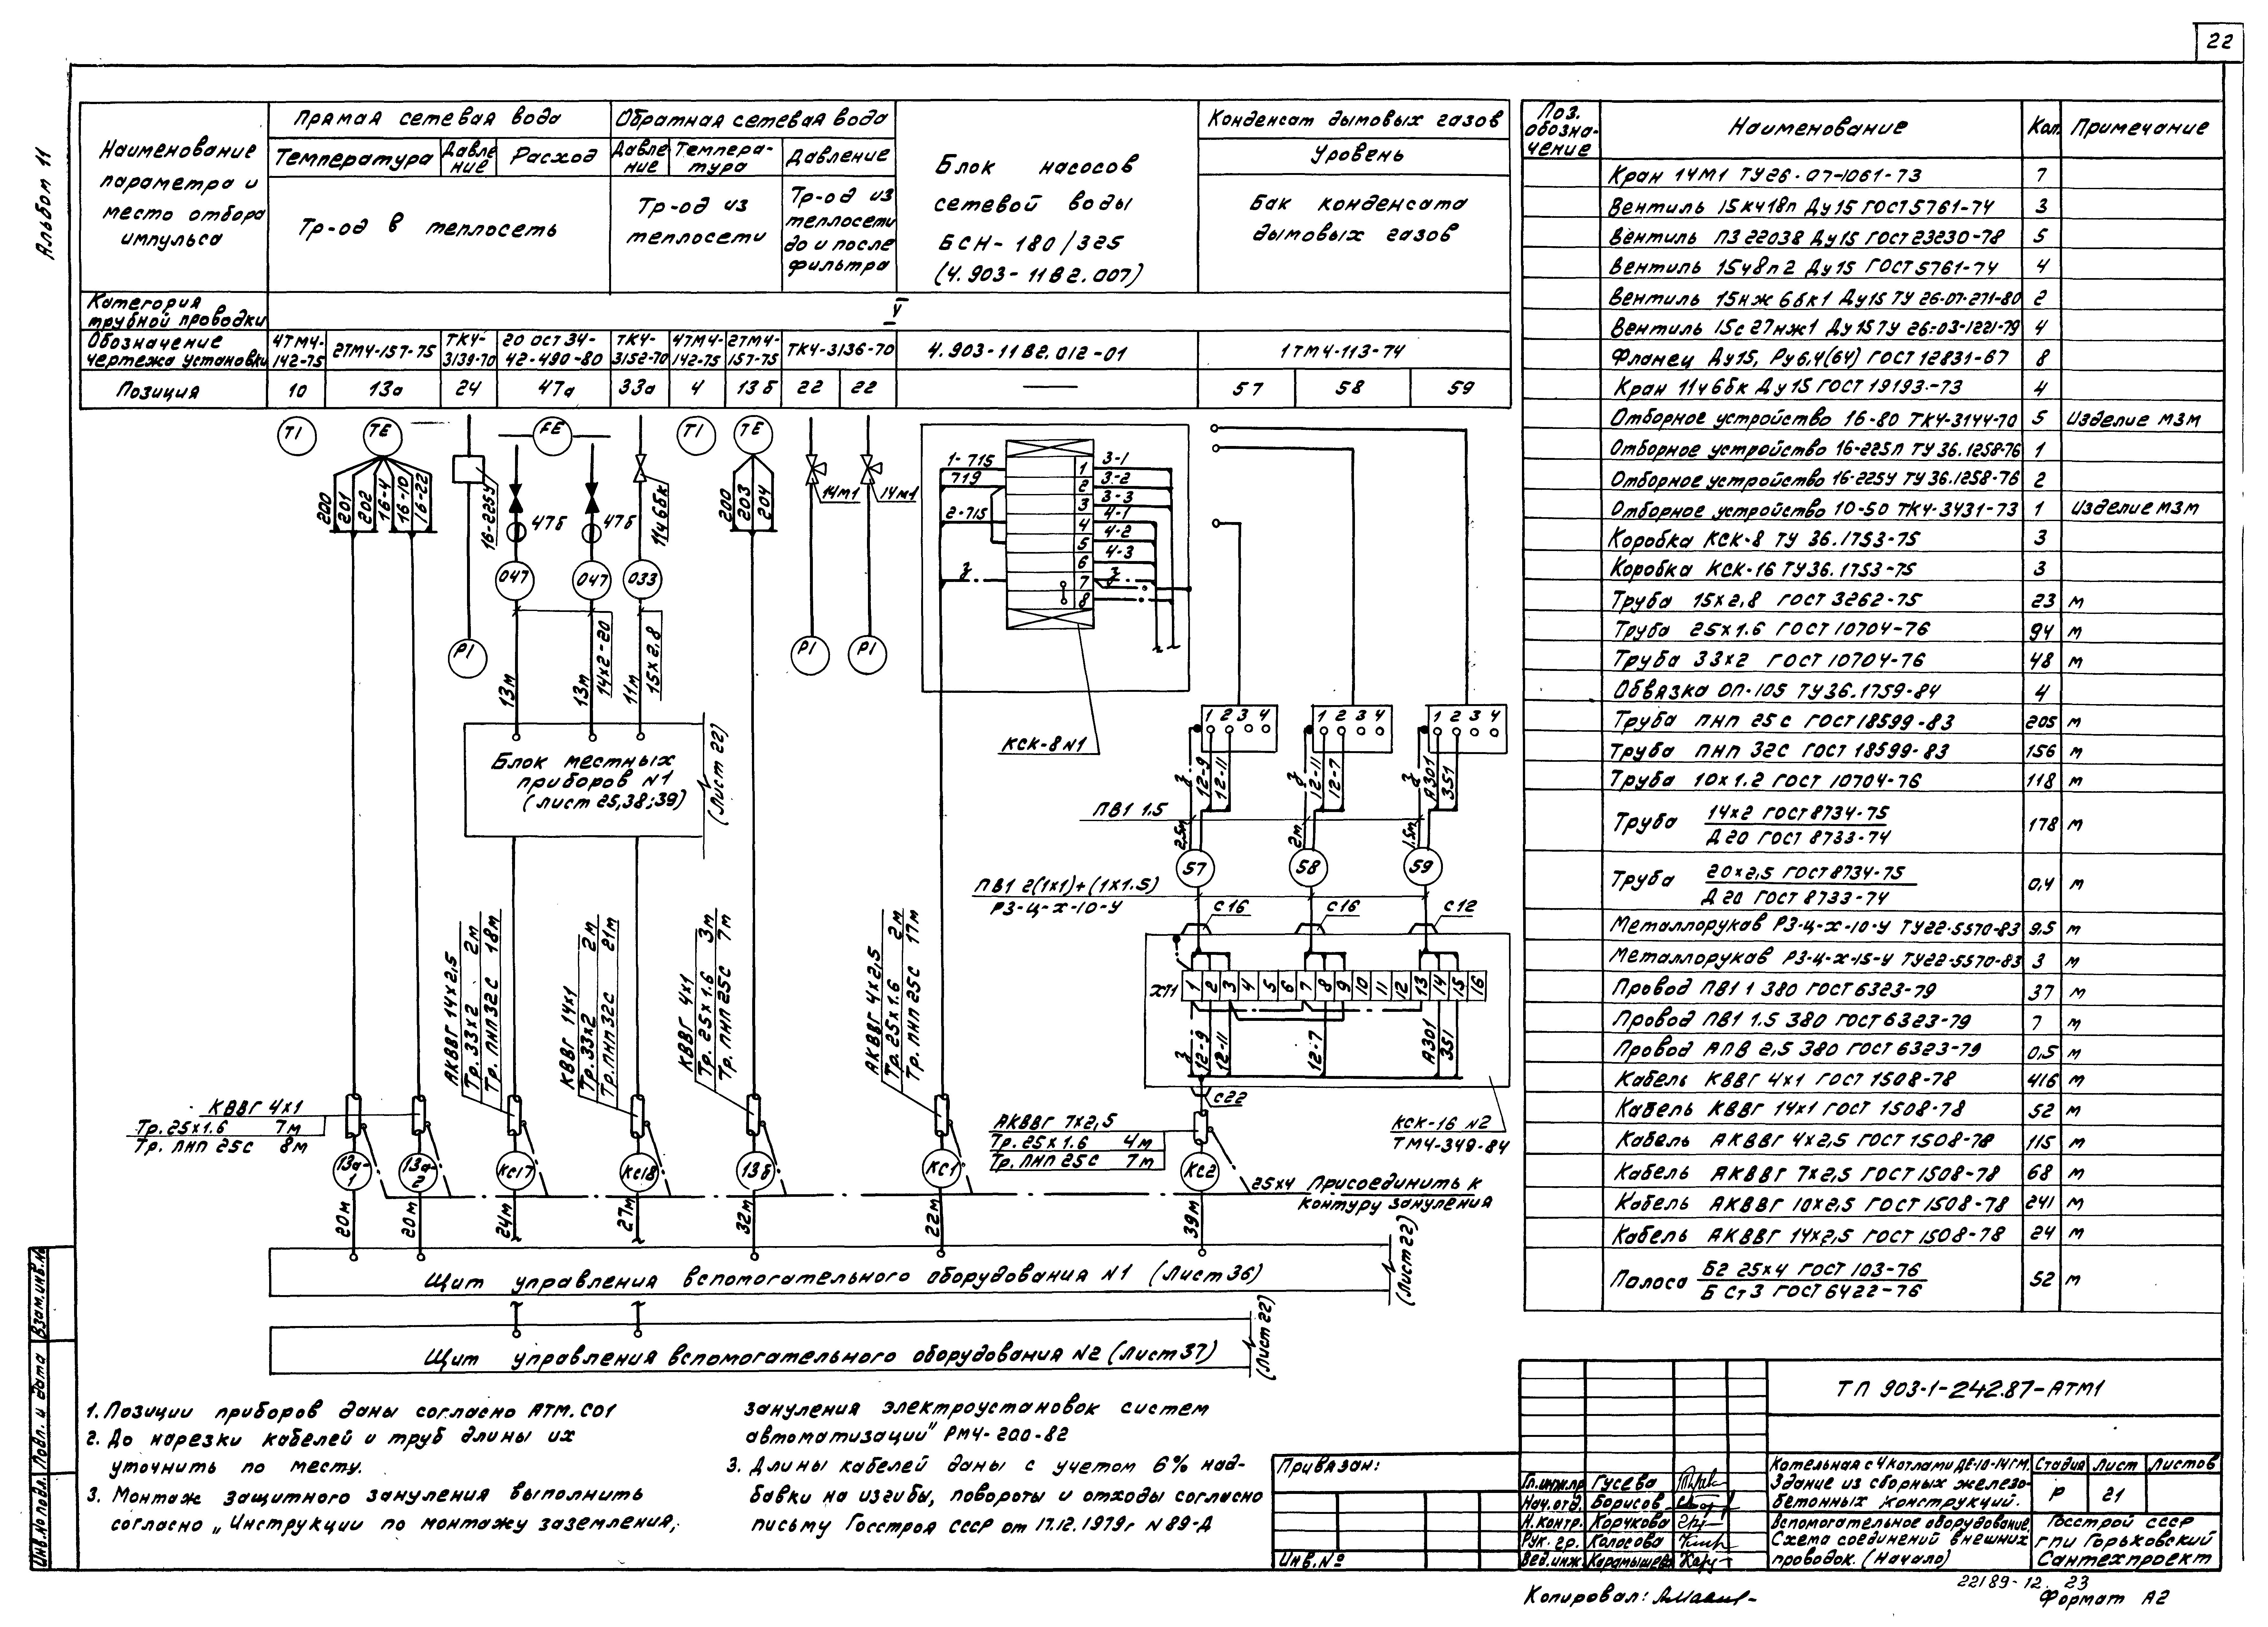 22
Альбом 11
Наименование параметра и место отбора импульса
Прямая сетевая вода
Обратная сетевая вода
Температура
Давление
Расход
Давление
Температура
Давление
Тр-од в теплосеть
Тр-од из теплосети
Тр-од из теплосети до и после фильтра
Блок насосов
сетевой воды
БСН-180/325
(4.903-11В2.007)
Конденсат дымовых газов
Уровень
Бак конденсата
дымовых газов
Категория трубной проводки
V
Обозначение чертежа установки
4ТМ4-142-75
2ТМ4-157-75
ТК4-3139-70
20 ОСТ 34-42-490-80
ТК4-3152-70
4ТМ4-142-75
2ТМ4-157-75
ТК4-3136-70
4.903-11В2.012-01
1ТМ4-113-74
Позиция
10 13а 24 47а 33а 4 13б 22 22 — 57 58 59
TI TE FE TI TE
200 201 202 16-4 16-10 16-22
16-225У
47б 47б
11ч6бк
200 203 204
14М1 14М1
047 047 033
PI PI PI
13м 13м 14х2-20 11м 15х2,8
Блок местных
приборов N1
(лист 25,38;39)
(Лист 22)
1-715
719
2-715
3-1
3-2
3-3
4-1
4-2
4-3
1 2 3 4 5 6 7 8
КСК-8 N1
1 2 3 4
1 2 3 4
1 2 3 4
12-9 12-11
12-11 12-7
А301 351
ПВ1 1.5
2,5м 2м 1,5м
57 58 59
ПВ1 2(1х1)+(1х1.5)
РЗ-Ц-Х-10-У
С16 С16 С12
ХТ1
1 2 3 4 5 6 7 8 9 10 11 12 13 14 15 16
12-9 12-11 12-7 А301 351
С22
КСК-16 N2
ТМ4-349-84
АКВВГ 14х2,5
Тр. 33х2 2м
Тр. ПНП 32С 18м
КВВГ 14х1
Тр. 33х2 2м
Тр. ПНП 32С 21м
КВВГ 4х1
Тр. 25х1.6 3м
Тр. ПНП 25С 7м
АКВВГ 4х2,5
Тр. 25х1.6 2м
Тр. ПНП 25С 17м
КВВГ 4х1
Тр. 25х1.6 7м
Тр. ПНП 25С 8м
АКВВГ 7х2,5
Тр. 25х1.6 4м
Тр. ПНП 25С 7м
13а-1 13а-2 КС17 КС18 13б КС1 КС2
25х4 Присоединить к
контуру зануления
20м 20м 24м 27м 32м 22м 39м
Щит управления вспомогательного оборудования N1 (Лист 36)
(Лист 22)
Щит управления вспомогательного оборудования N2 (Лист 37)
(Лист 22)
1. Позиции приборов даны согласно АТМ.С01
2. До нарезки кабелей и труб длины их
уточнить по месту.
3. Монтаж защитного зануления выполнить
согласно „Инструкции по монтажу заземления,
зануления электроустановок систем
автоматизации" РМ4-200-82
3. Длины кабелей даны с учетом 6% над-
бавки на изгибы, повороты и отходы согласно
письму Госстроя СССР от 17.12.1979г N 89-Д
Поз. обозначение Наименование Кол. Примечание
Кран 14М1 ТУ26-07-1061-73 7
Вентиль 15кч18п Ду15 ГОСТ 5761-74 3
Вентиль ПЗ 22038 Ду15 ГОСТ 23230-78 5
Вентиль 15ч8п2 Ду15 ГОСТ 5761-74 4
Вентиль 15нж 6бк1 Ду15 ТУ 26-07-271-80 2
Вентиль 15с27нж1 Ду15 ТУ 26-03-1221-79 4
Фланец Ду15, Ру6,4(64) ГОСТ 12831-67 8
Кран 11ч6бк Ду15 ГОСТ 19193-73 4
Отборное устройство 16-80 ТК4-3144-70 5 Изделие МЗМ
Отборное устройство 16-225П ТУ 36.1258-76 1
Отборное устройство 16-225У ТУ 36.1258-76 2
Отборное устройство 10-50 ТК4-3431-73 1 Изделие МЗМ
Коробка КСК-8 ТУ 36.1753-75 3
Коробка КСК-16 ТУ36.1753-75 3
Труба 15х2,8 ГОСТ 3262-75 23 м
Труба 25х1.6 ГОСТ 10704-76 94 м
Труба 33х2 ГОСТ 10704-76 48 м
Обвязка ОП-105 ТУ36.1759-84 4
Труба ПНП 25С ГОСТ 18599-83 205 м
Труба ПНП 32С ГОСТ 18599-83 156 м
Труба 10х1.2 ГОСТ 10704-76 118 м
Труба 14х2 ГОСТ 8734-75 / Д20 ГОСТ 8733-74 178 м
Труба 20х2,5 ГОСТ 8734-75 / Д20 ГОСТ 8733-74 0,4 м
Металлорукав РЗ-Ц-Х-10-У ТУ22-5570-83 9,5 м
Металлорукав РЗ-Ц-Х-15-У ТУ22-5570-83 3 м
Провод ПВ1 1 380 ГОСТ 6323-79 37 м
Провод ПВ1 1.5 380 ГОСТ 6323-79 7 м
Провод АПВ 2,5 380 ГОСТ 6323-79 0,5 м
Кабель КВВГ 4х1 ГОСТ 1508-78 416 м
Кабель КВВГ 14х1 ГОСТ 1508-78 52 м
Кабель АКВВГ 4х2,5 ГОСТ 1508-78 115 м
Кабель АКВВГ 7х2,5 ГОСТ 1508-78 68 м
Кабель АКВВГ 10х2,5 ГОСТ 1508-78 241 м
Кабель АКВВГ 14х2,5 ГОСТ 1508-78 24 м
Полоса Б2 25х4 ГОСТ 103-76 / Б Ст3 ГОСТ 6422-76 52 м
ТП 903-1-242.87-АТМ1
Привязан:
Инв.№
Гл.инж.пр Гусева
Нач.отд. Борисов
Н.контр. Корчкова
Рук. гр. Колосова
Вед.инж. Карамышева
Котельная с 4 котлами ДЕ-10-14ГМ.
Здание из сборных железо-
бетонных конструкций.
Стадия Лист Листов
Р 21
Вспомогательное оборудование.
Схема соединений внешних
проводок. (Начало)
Госстрой СССР
ГПИ Горьковский
Сантехпроект
22189-12 23
Копировал:
Формат А2
Инв.№ подл. Подп. и дата Взам.инв.№